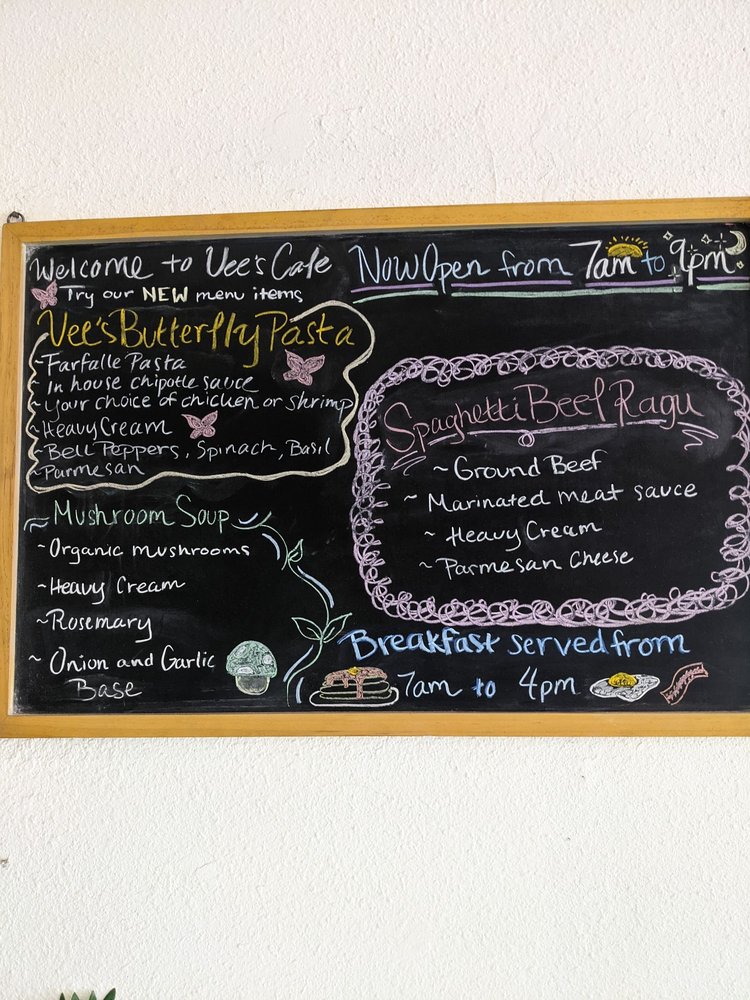 Welcome to Vee's Cafe
Try our NEW menu items
Vee's Butterfly Pasta
~Farfalle Pasta
~In house chipotle sauce
~your choice of chicken or shrimp
~Heavy Cream
~Bell Peppers, Spinach, Basil
~Parmesan
~Mushroom Soup~
~Organic mushrooms
~Heavy Cream
~Rosemary
~Onion and Garlic
Base
Now Open from 7am to 9pm
Spaghetti Beef Ragu
~Ground Beef
~Marinated meat sauce
~Heavy Cream
~Parmesan Cheese
Breakfast served from
7am to 4pm